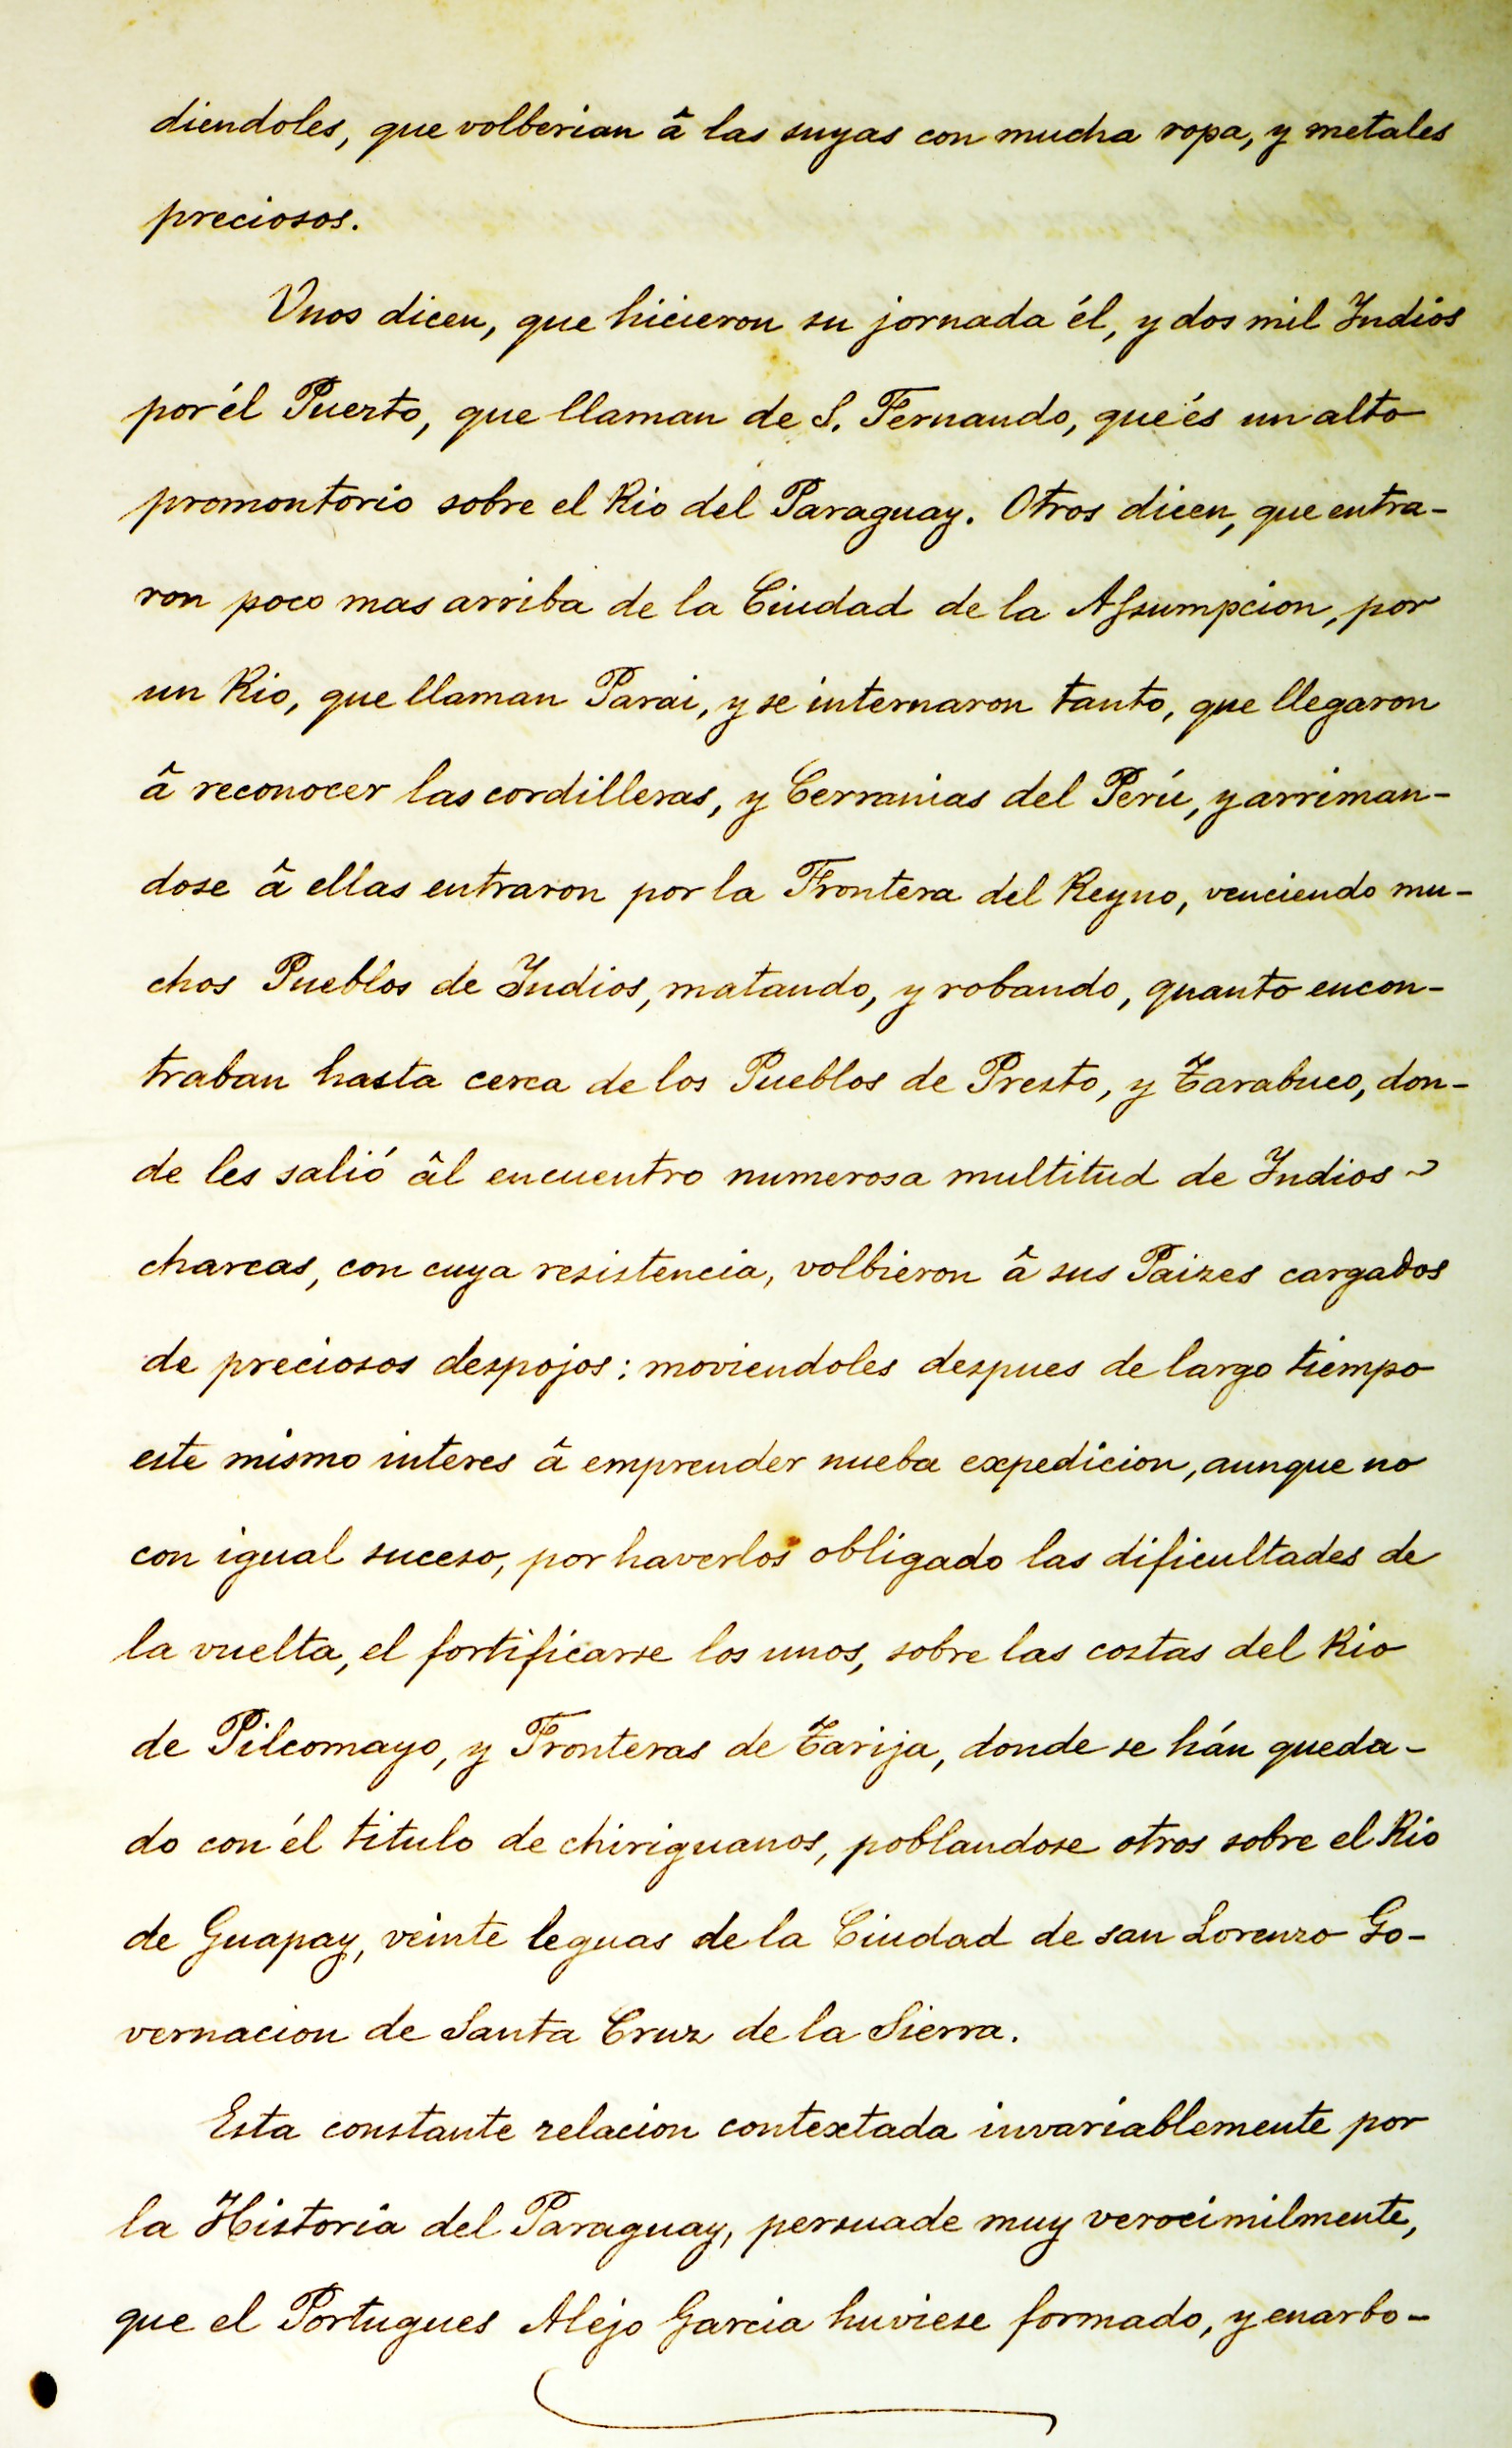 diendoles, que volberian â las suyas con mucha ropa, y metales
preciosos.
Vnos dicen, que hicieron su jornada él, y dos mil Indios
por él Puerto, que llaman de S. Fernando, que és un alto
promontorio sobre el Rio del Paraguay. Otros dicen, que entra-
ron poco mas arriba de la Ciudad de la Assumpcion, por
un Rio, que llaman Parai, y se internaron tanto, que llegaron
â reconocer las cordilleras, y Cerranias del Perú, y arriman-
dose â ellas entraron por la Frontera del Reyno, venciendo mu-
chos Pueblos de Indios, matando, y robando, quanto encon-
traban hasta cerca de los Pueblos de Presto, y Tarabuco, don-
de les salió âl encuentro numerosa multitud de Indios
charcas, con cuya resistencia, volbieron â sus Paizes cargados
de preciosos despojos: moviendoles despues de largo tiempo
este mismo interes â emprender nueba expedicion, aunque no
con igual suceso, por haverlos obligado las dificultades de
la vuelta, el fortificarse los unos, sobre las costas del Rio
de Pilcomayo, y Fronteras de Tarija, donde se hán queda-
do con él titulo de chiriguanos, poblandose otros sobre el Rio
de Guapay, veinte leguas de la Ciudad de san Lorenzo Go-
vernacion de Santa Cruz de la Sierra.
Esta constante relacion contextada invariablemente por
la Historia del Paraguay, persuade muy verocimilmente,
que el Portugues Alejo Garcia huviese formado, y enarbo-